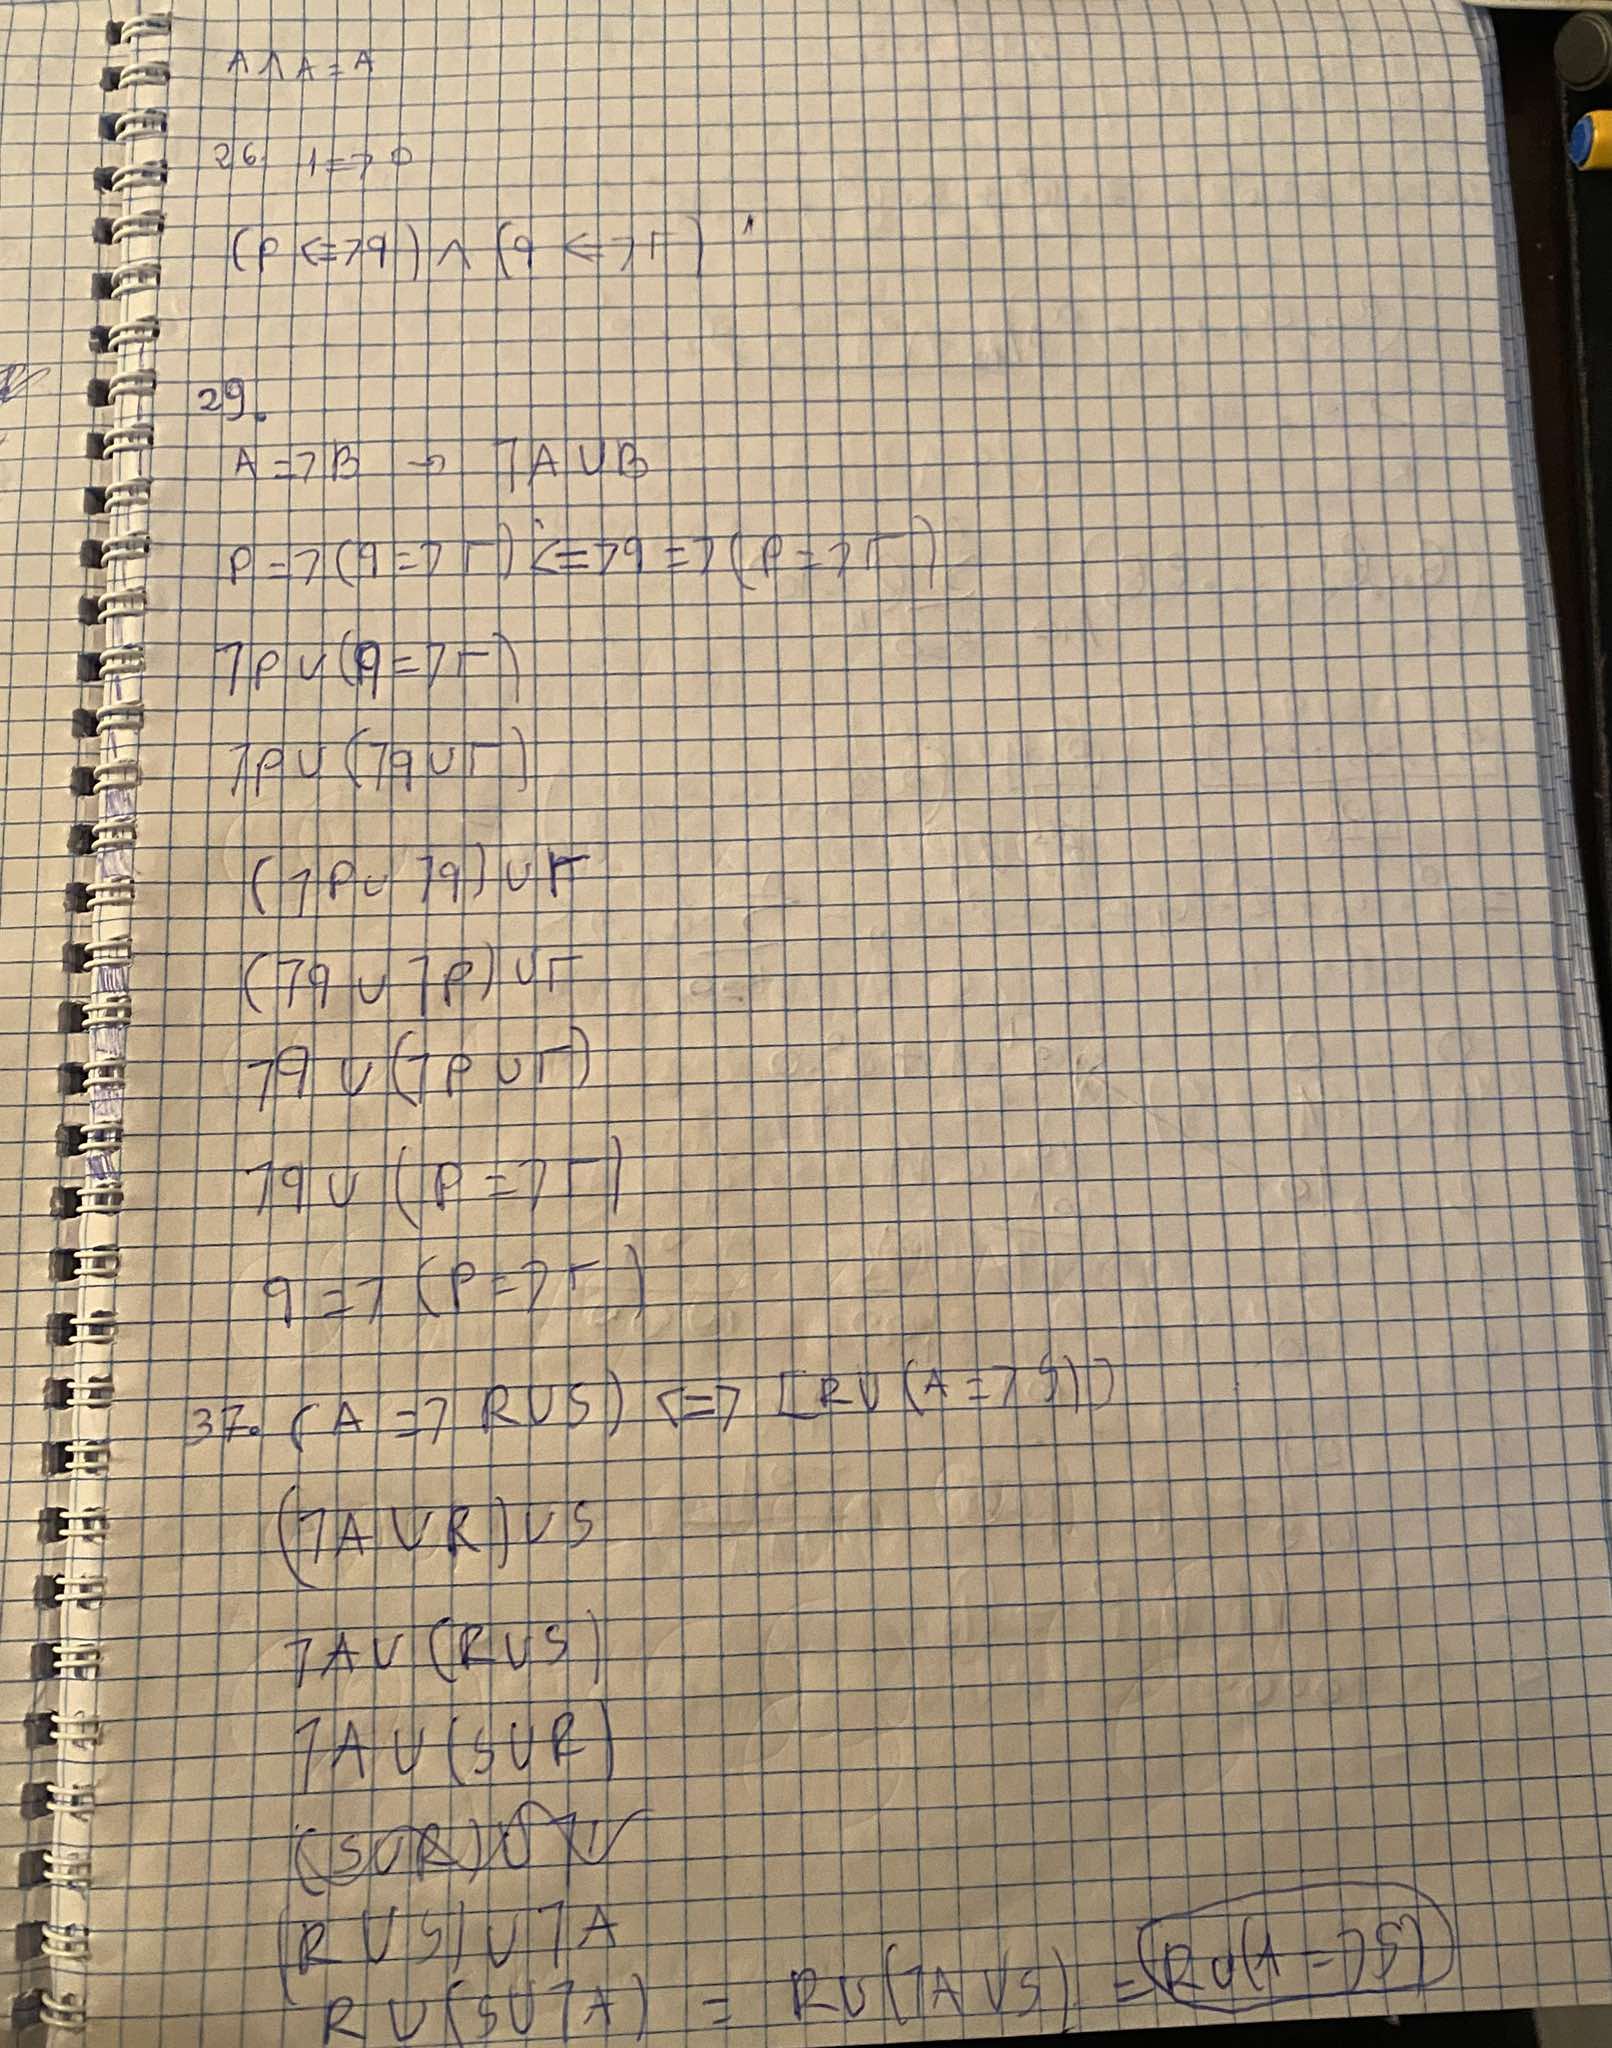 A ∧ A = A
26. 1 => 0
(p <=> q) ∧ (q <=> r)
29.
A => B → ¬A ∪ B
p => (q => r) <=> q => (p => r)
¬p ∪ (q => r)
¬p ∪ (¬q ∪ r)
(¬p ∪ ¬q) ∪ r
(¬q ∪ ¬p) ∪ r
¬q ∪ (¬p ∪ r)
¬q ∪ (p => r)
q => (p => r)
37. (A => R ∪ S) <=> [R ∪ (A => S)]
(¬A ∪ R) ∪ S
¬A ∪ (R ∪ S)
¬A ∪ (S ∪ R)
(R ∪ S) ∪ ¬A
R ∪ (S ∪ ¬A) = R ∪ (¬A ∪ S) = R ∪ (A => S)